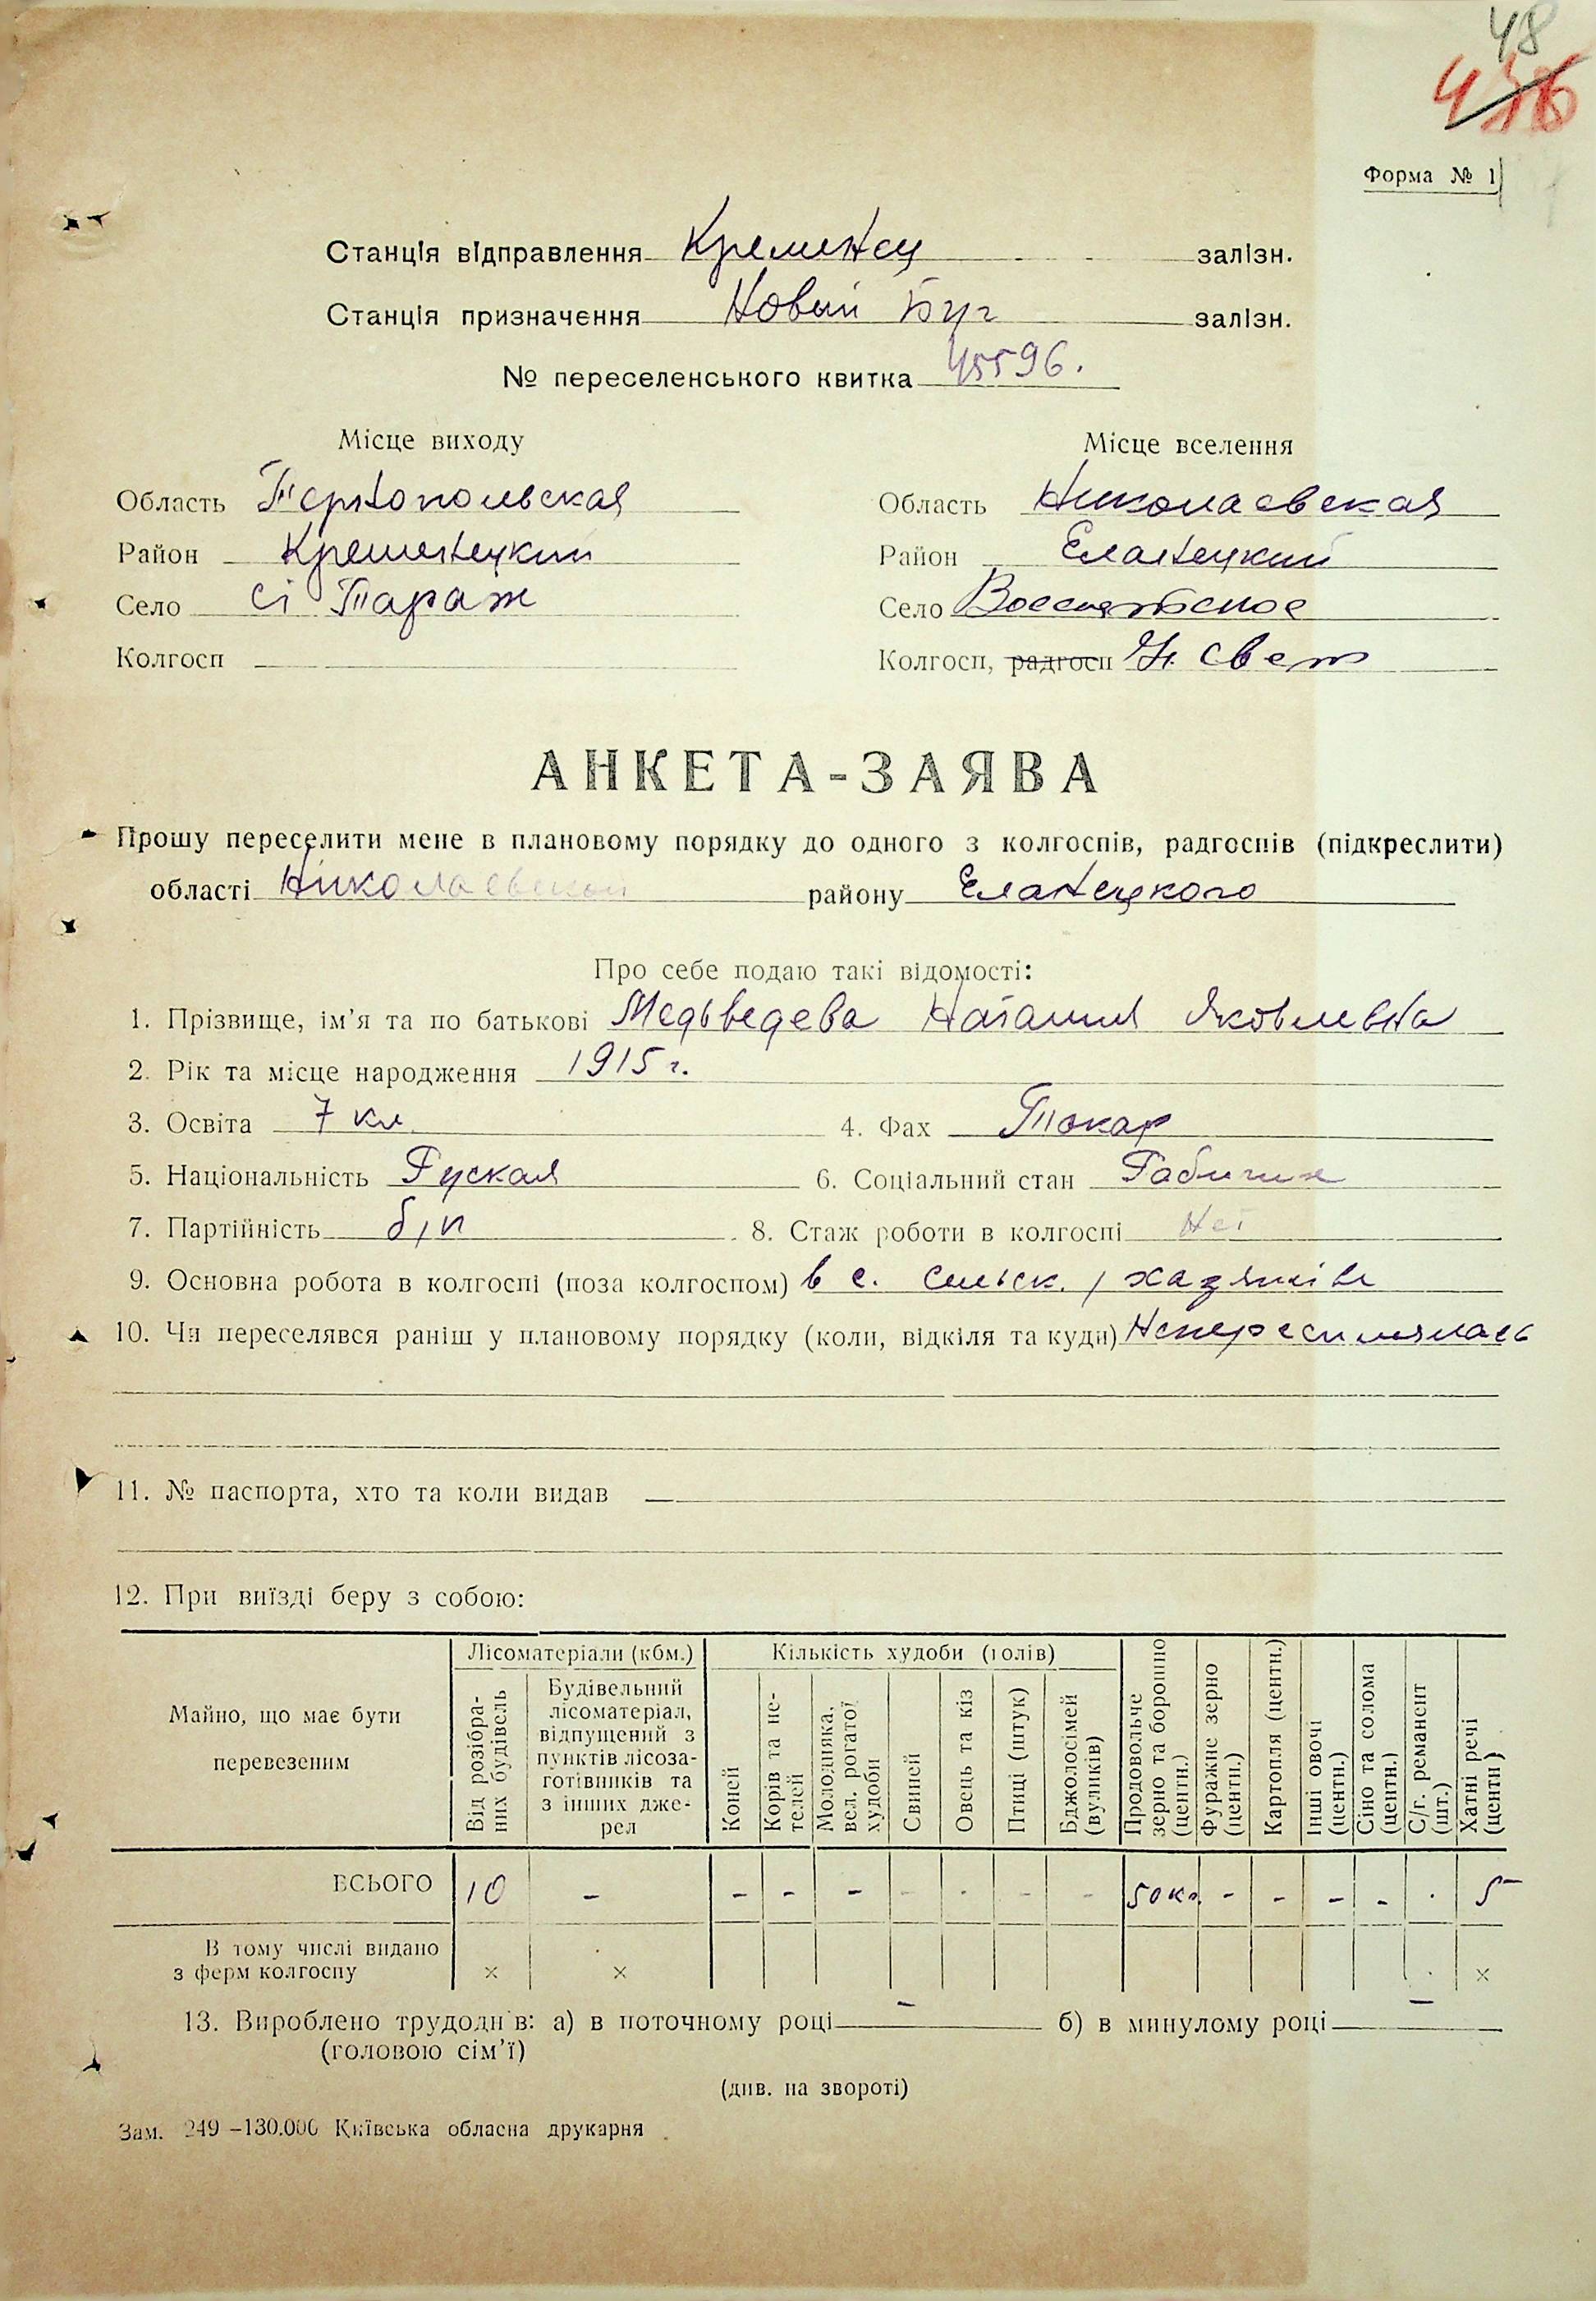 48
456
Форма № 1
Станція відправлення Кременец залізн.
Станція призначення Новый Буг залізн.
№ переселенського квитка 45596.
Місце виходу Місце вселення
Область Тернопольская Область Николаевская
Район Кременецкий Район Еланецкий
Село с. Тараж Село
Колгосп Колгосп, радгосп Н. Свет
АНКЕТА-ЗАЯВА
Прошу переселити мене в плановому порядку до одного з колгоспів, радгоспів (підкреслити)
області Николаевской району Еланецкого
Про себе подаю такі відомості:
1. Прізвище, ім'я та по батькові Медьведева Наталия Яковлевна
2. Рік та місце народження 1915 г.
3. Освіта 7 кл 4. Фах Токар
5. Національність Руская 6. Соціальний стан
7. Партійність б/п 8. Стаж роботи в колгоспі Нет
9. Основна робота в колгоспі (поза колгоспом) в с. сельск.
10. Чи переселявся раніш у плановому порядку (коли, відкіля та куди)
11. № паспорта, хто та коли видав —
12. При виїзді беру з собою:
Майно, що має бути перевезеним
Лісоматеріали (кбм.)
Від розібраних будівель
Будівельний лісоматеріал, відпущений з пунктів лісозаготівників та з інших джерел
Кількість худоби (голів)
Коней
Корів та нетелей
Молодняка, вел. рогатої худоби
Свиней
Овець та кіз
Птиці (штук)
Бджолосімей (вуликів)
Продовольче зерно та борошно (центн.)
Фуражне зерно (центн.)
Картопля (центн.)
Інші овочі (центн.)
Сіно та солома (центн.)
С/г. реманент (шт.)
Хатні речі (центн)
ВСЬОГО 10 - - - - - - - - 50 кг. - - - - . 5
В тому числі видано
з ферм колгоспу × × ×
13. Вироблено трудоднів: а) в поточному році – б) в минулому році –
(головою сім'ї)
(див. на звороті)
Зам. 249 –130.000 Київська обласна друкарня